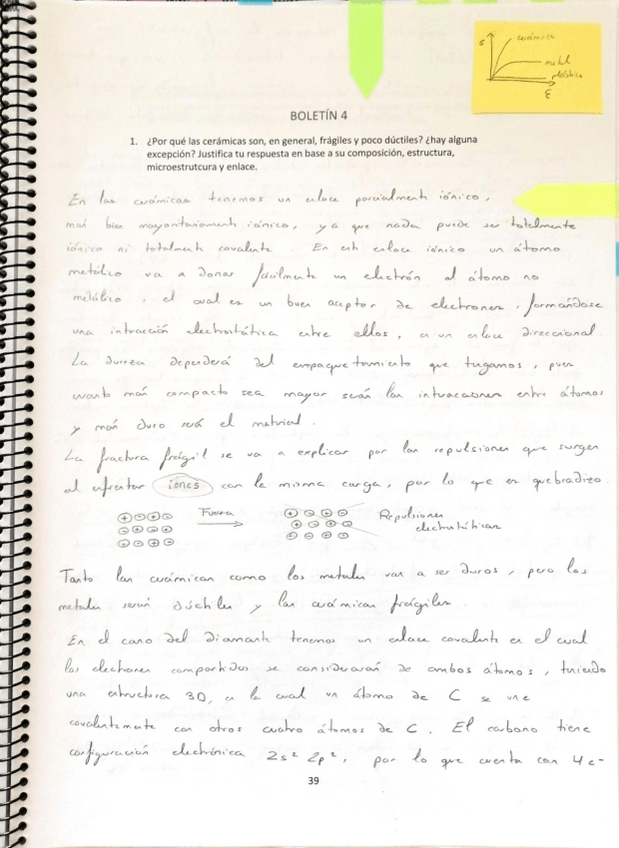 σ
cerámica
metal
plástico
ε
BOLETÍN 4
1. ¿Por qué las cerámicas son, en general, frágiles y poco dúctiles? ¿hay alguna
excepción? Justifica tu respuesta en base a su composición, estructura,
microestrutcura y enlace.
En las cerámicas tenemos un enlace parcialmente iónico,
más bien mayoritariamente iónico, ya que nada puede ser totalmente
iónico ni totalmente covalente. En este enlace iónico un átomo
metálico va a donar fácilmente un electrón al átomo no
metálico, el cual es un buen aceptor de electrones, formándose
una interacción electrostática entre ellos, es un enlace direccional
La dureza dependerá del empaquetamiento que tengamos, pues
cuanto más compacto sea mayor serán las interacciones entre átomos
y más duro será el material.
La fractura frágil se va a explicar por las repulsiones que surgen
al enfrentar iones con la misma carga, por lo que es quebradizo.
Fuerza
Repulsiones
electrostáticas
Tanto las cerámicas como los metales van a ser duros, pero los
metales serán dúctiles y las cerámicas frágiles.
En el caso del diamante tenemos un enlace covalente en el cual
los electrones compartidos se considerarán de ambos átomos, teniendo
una estructura 3D, en la cual un átomo de C se une
covalentemente con otros cuatro átomos de C. El carbono tiene
configuración electrónica 2s² 2p², por lo que cuenta con 4 e-
39